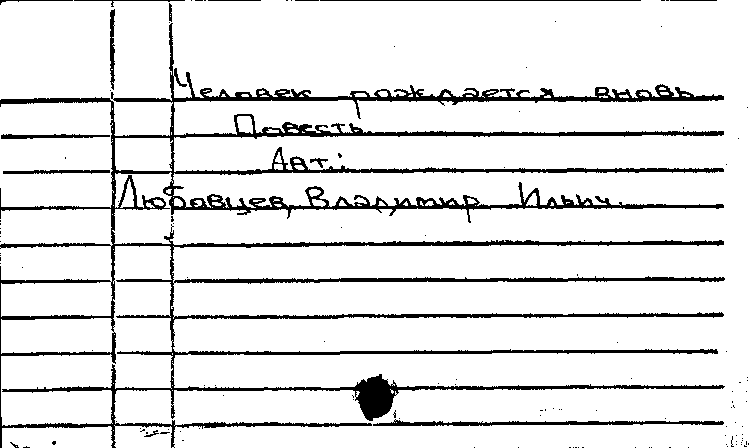 Человек рождается вновь
Повесть.
Авт.:
Любовцев, Владимир Ильич.